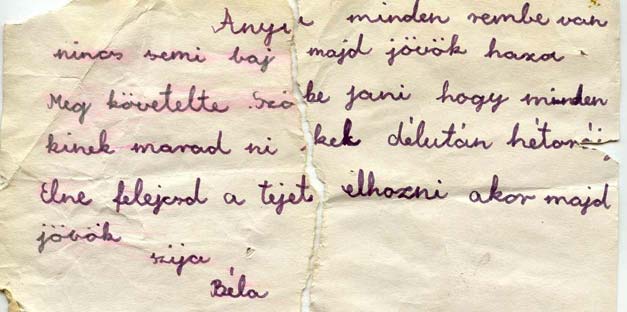 Anyu minden rembe van
nincs semi baj majd jövök haza
Meg követelte Szőke jani hogy minden
kinek marad ni kek délután hétorái
Elne felejcsd a tejet elhozni akor majd
jövök
szija
Béla